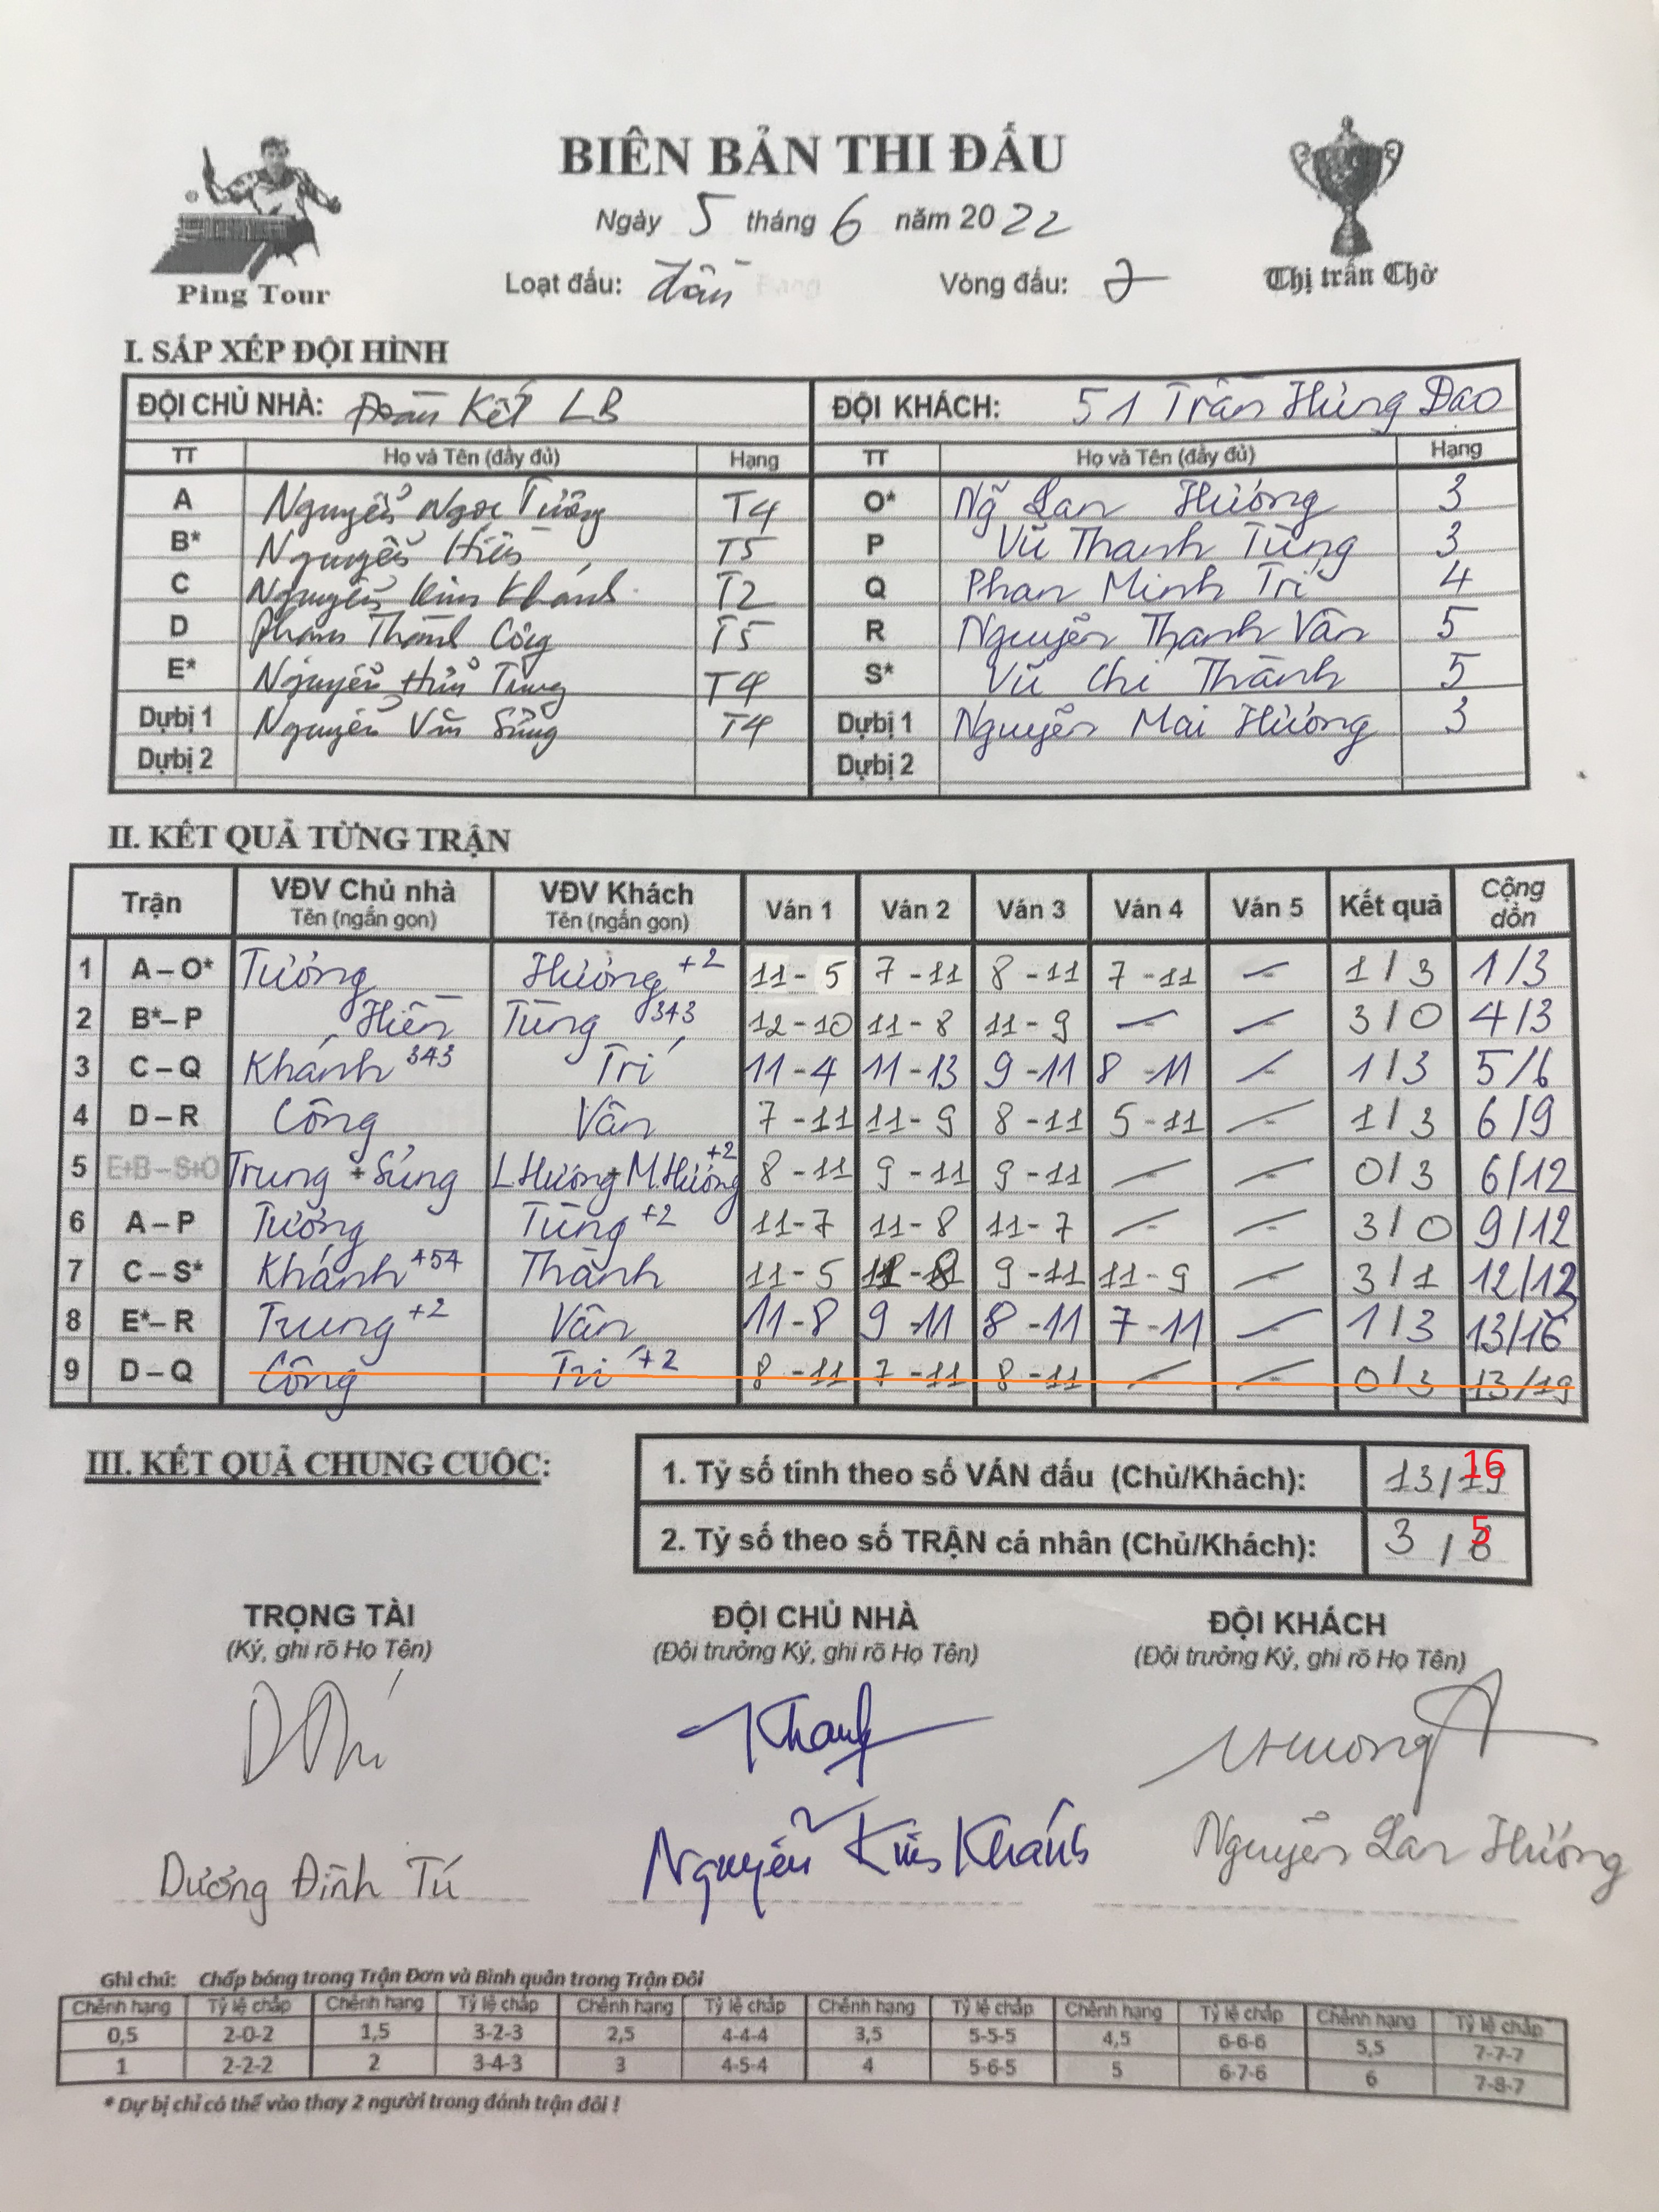 BIÊN BẢN THI ĐẤU
Ngày 5 tháng 6 năm 2022
Ping Tour
Loạt đấu: Vòng đấu: 7
Thị trấn Chờ
I. SẮP XẾP ĐỘI HÌNH
ĐỘI CHỦ NHÀ: Đoàn Kết LB ĐỘI KHÁCH: 51 Trần Hưng Đạo
TT Họ và Tên (đầy đủ) Hạng TT Họ và Tên (đầy đủ) Hạng
A Nguyễn Ngọc Tưởng T4 O* Ng̃ Lan Hương 3
B* Nguyễn Hiền T5 P Vũ Thanh Tùng 3
C Nguyễn Kim Khánh T2 Q Phan Minh Trí 4
D Phạm Thành Công T5 R Nguyễn Thanh Vân 5
E* Nguyễn Trung T4 S* Vũ Chí Thành 5
Dự bị 1 Nguyễn Văn Sủng T4 Dự bị 1 Nguyễn Mai Hương 3
Dự bị 2 Dự bị 2
II. KẾT QUẢ TỪNG TRẬN
Trận VĐV Chủ nhà Tên (ngắn gọn) VĐV Khách Tên (ngắn gọn) Ván 1 Ván 2 Ván 3 Ván 4 Ván 5 Kết quả Cộng dồn
1 A – O* Tưởng Hương +2 11 - 5 7 - 11 8 - 11 7 - 11 – 1 / 3 1/3
2 B*– P Hiền Tùng 343 12 - 10 11 - 8 11 - 9 – – 3 / 0 4/3
3 C – Q Khánh 343 Trí 11 - 4 11 - 13 9 - 11 8 - 11 – 1 / 3 5/6
4 D – R Công Vân 7 - 11 11 - 9 8 - 11 5 - 11 – 1 / 3 6/9
5 E+B – S+O Trung + Sủng L.Hương + M.Hương +2 8 - 11 9 - 11 9 - 11 – – 0 / 3 6/12
6 A – P Tưởng Tùng +2 11 - 7 11 - 8 11 - 7 – – 3 / 0 9/12
7 C – S* Khánh 454 Thành 11 - 5 11 - 8 9 - 11 11 - 9 – 3 / 1 12/13
8 E*– R Trung +2 Vân 11 - 8 9 - 11 8 - 11 7 - 11 – 1 / 3 13/16
9 D – Q Công Trí +2 8 - 11 7 - 11 8 - 11 – – 0 / 3 13/19
III. KẾT QUẢ CHUNG CUỘC:
1. Tỷ số tính theo số VÁN đấu (Chủ/Khách): 13/19 16
2. Tỷ số theo số TRẬN cá nhân (Chủ/Khách): 3 / 6 5
TRỌNG TÀI ĐỘI CHỦ NHÀ ĐỘI KHÁCH
(Ký, ghi rõ Họ Tên) (Đội trưởng Ký, ghi rõ Họ Tên) (Đội trưởng Ký, ghi rõ Họ Tên)
Khanh Hương
Dương Đình Tú Nguyễn Kim Khánh Nguyễn Lan Hương
Ghi chú: Chấp bóng trong Trận Đơn và Bình quân trong Trận Đôi
Chênh hạng Tỷ lệ chấp Chênh hạng Tỷ lệ chấp Chênh hạng Tỷ lệ chấp Chênh hạng Tỷ lệ chấp Chênh hạng Tỷ lệ chấp Chênh hạng Tỷ lệ chấp
0,5 2-0-2 1,5 3-2-3 2,5 4-4-4 3,5 5-5-5 4,5 6-6-6 5,5 7-7-7
1 2-2-2 2 3-4-3 3 4-5-4 4 5-6-5 5 6-7-6 6 7-8-7
* Dự bị chỉ có thể vào thay 2 người trong đánh trận đôi !